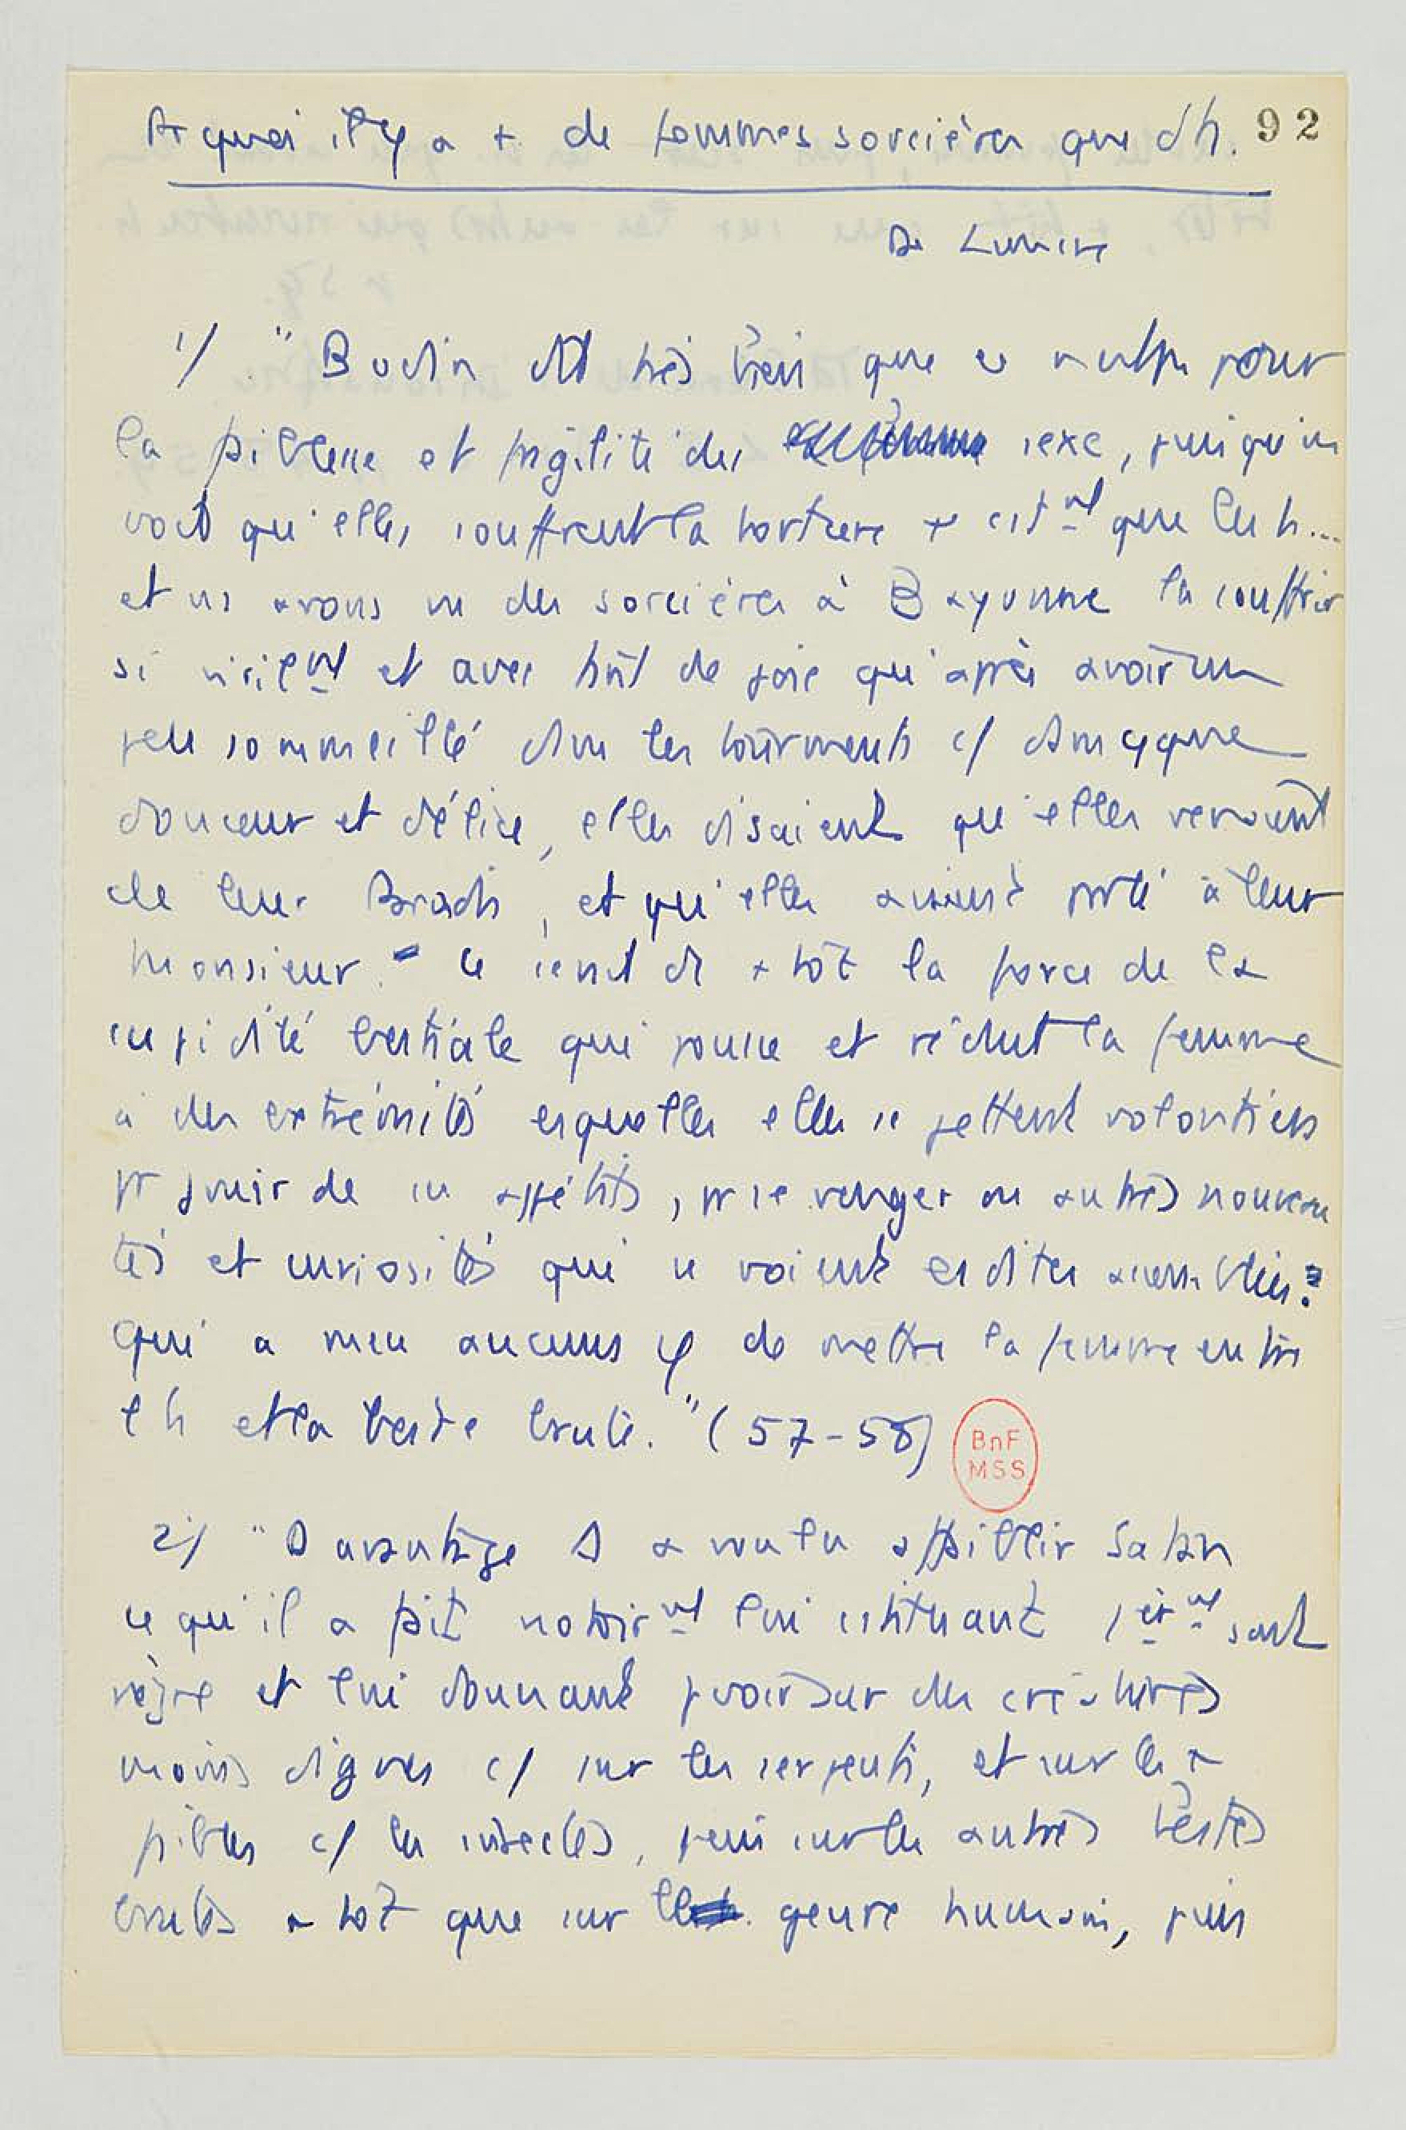 Pr quoi il y a + de femmes sorcières que d'h. 92
De Lancre
1/ " Bodin dit très bien que ce n'est pas pour
la faiblesse et fragilité du sexe, puisqu'on
voit qu'elles souffrent la torture + cstmt que les h...
et ns avons vu des sorcières à Bayonne la souffrir
si virilmt et avec tant de joie qu'après avoir un
peu sommeillé dans les tourments c/ dans qque
douceur et délice, elles disaient qu'elles venaient
de leur Paradis, et qu'elles avaient parlé à leur
Monsieur. Ce serait dc + tôt la force de la
cupidité bestiale qui pousse et réduit la femme
à des extrémités esquelles elles se jettent volontiers
pr jouir de ses appétits, pr se venger ou autres nouveau
tés et curiosités qui se voient es dites assemblées.
Qui a meu aucuns φ de mettre la femme entre
l'h et la beste brute. " (57-58)
BnF
MSS
2/ " Davantage D a voulu affaiblir Satan
ce qu'il a fait notoirmt lui cstituant 1èrmt son
règne et lui donnant pvoir sur des créatures
moins dignes c/ sur les serpents, et sur les +
faibles c/ les insectes, puis sur les autres bestes
brutes + tôt que sur le genre humain, puis